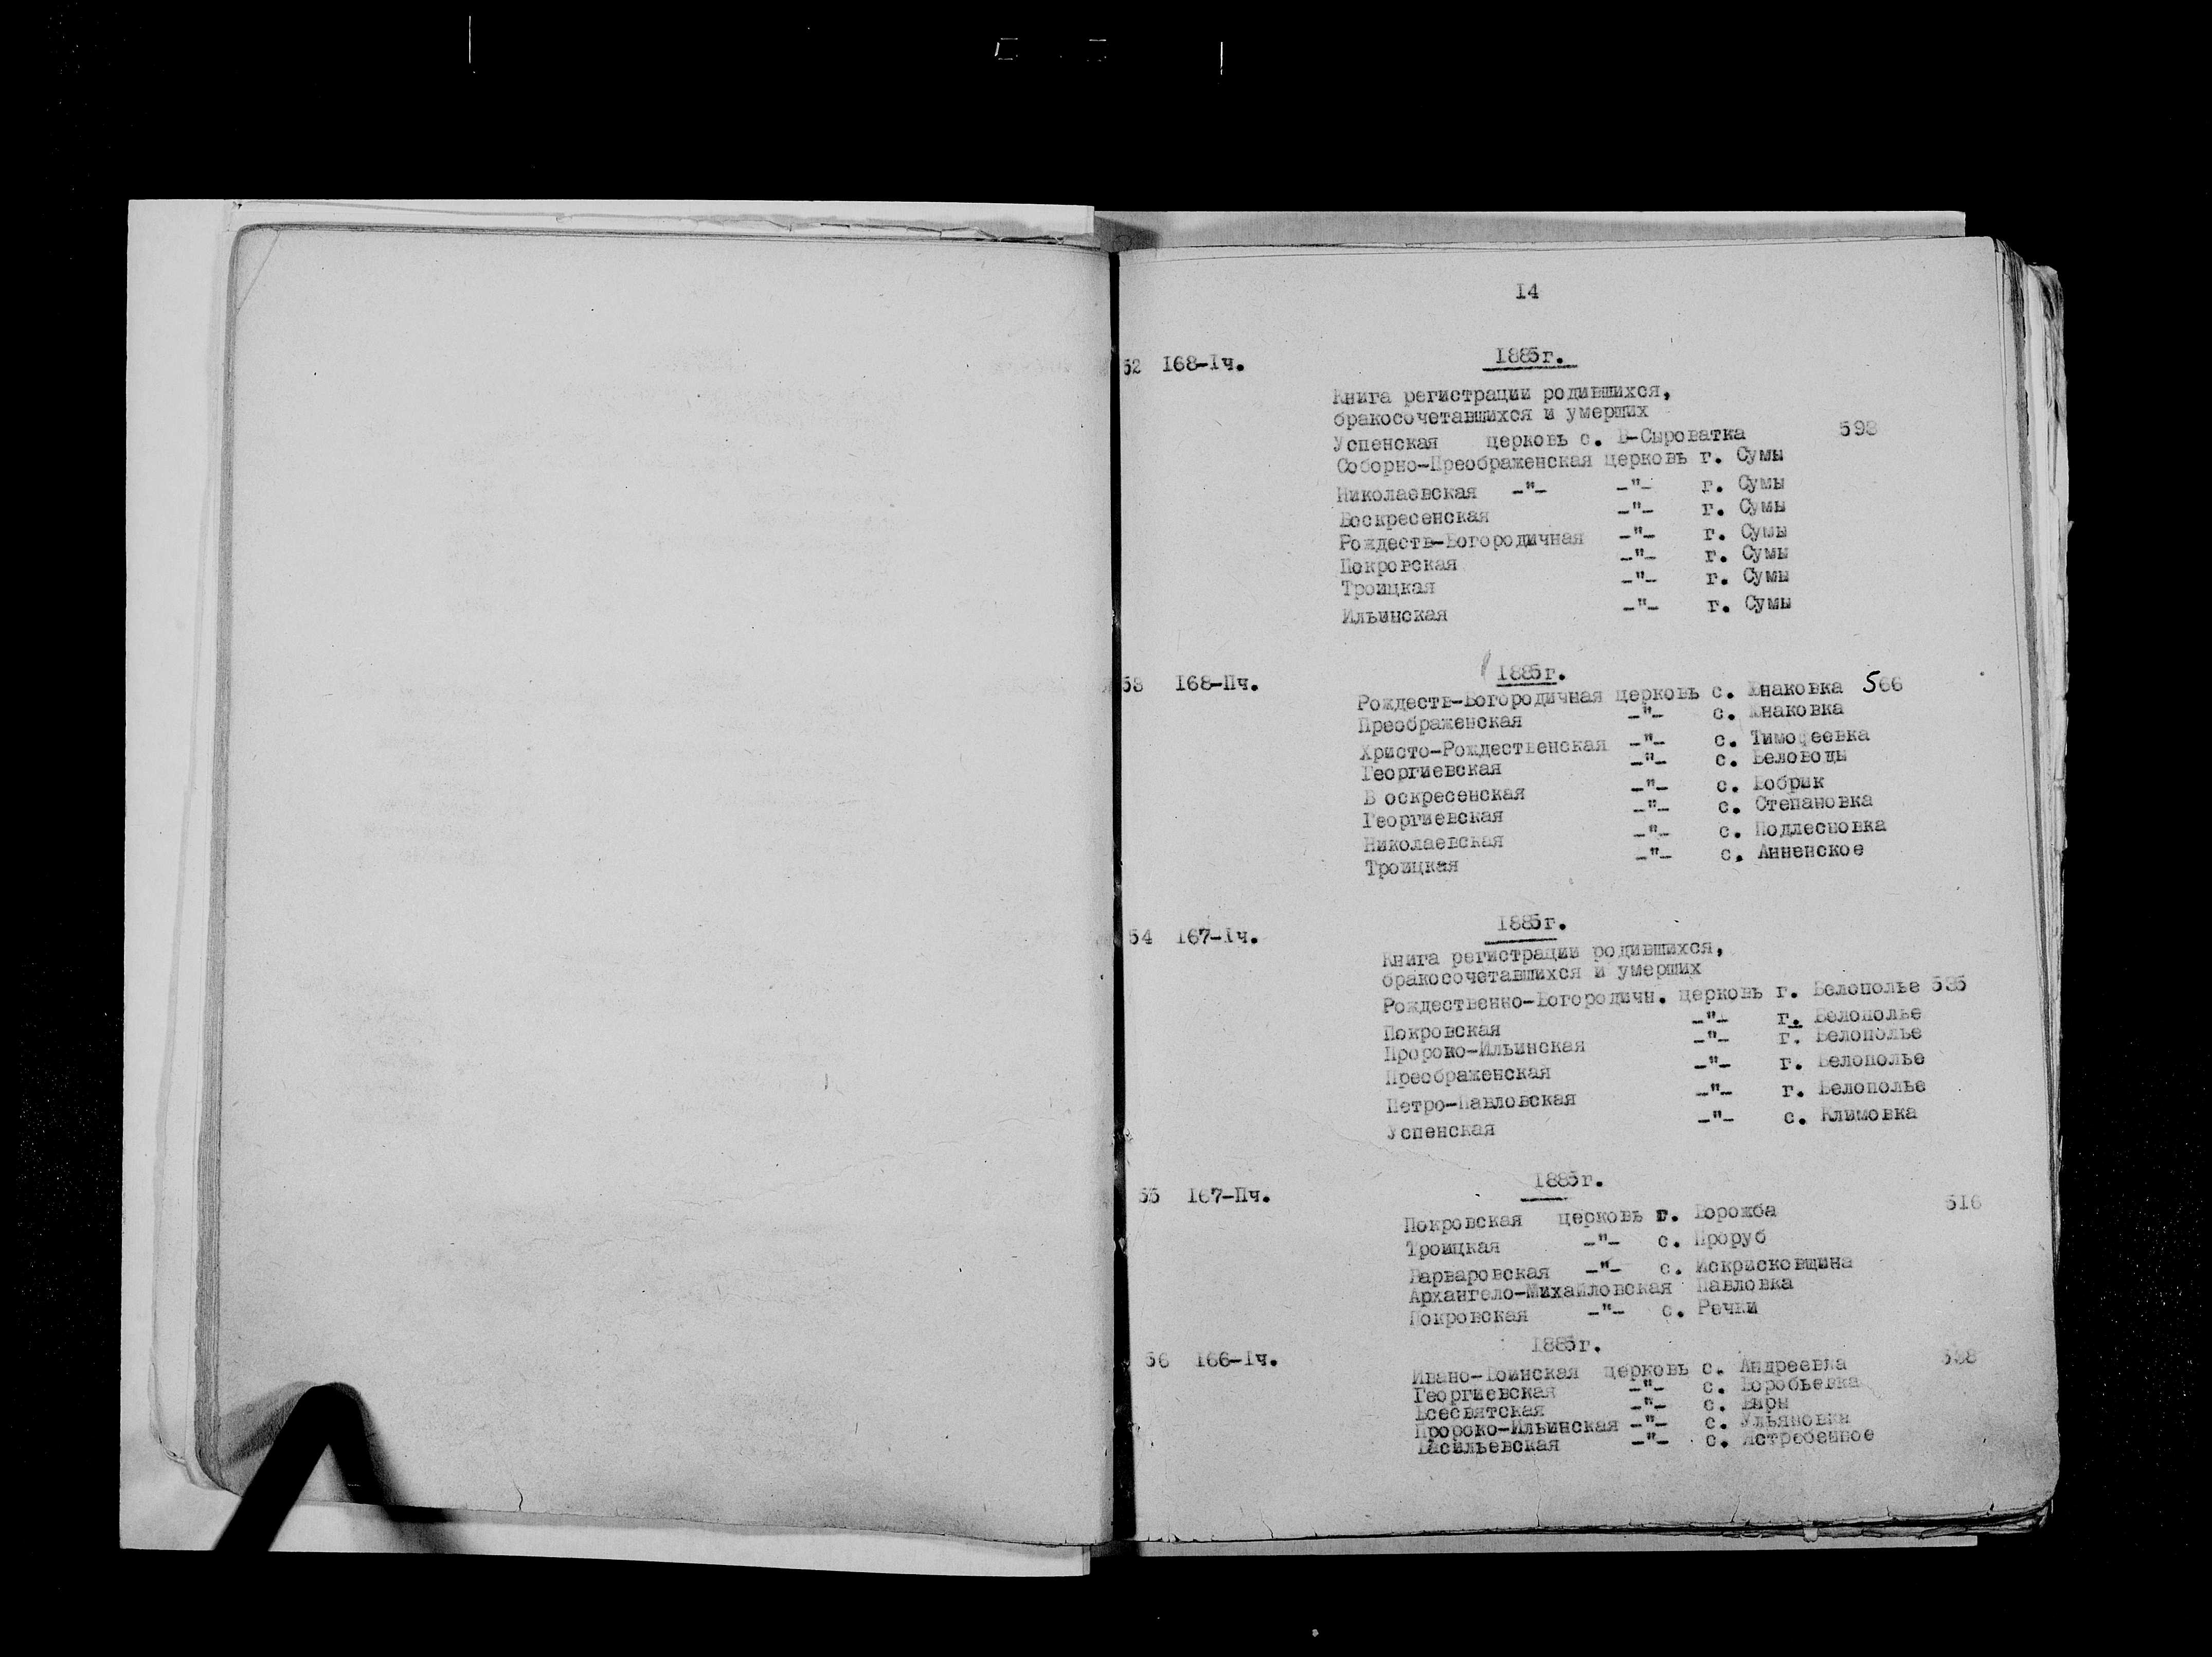 14
52 168-Iч. 1885г.
Книга регистрации родившихся,
бракосочетавшихся и умерших
Успенская церковь с. В-Сыроватка 593
Соборно-Преображенская церковь г. Сумы
Николаевская -"- -"- г. Сумы
Воскресенская -"- г. Сумы
Рождеств-Богородичная -"- г. Сумы
Покровская -"- г. Сумы
Троицкая -"- г. Сумы
Ильинская -"- г. Сумы
53 168-Пч. 1885г.
Рождеств-Богородичная церковь с. Юнаковка 566
Преображенская -"- с. Юнаковка
Христо-Рождественская -"- с. Тимофеевка
Георгиевская -"- с. Беловоды
В оскресенская -"- с. Бобрик
Георгиевская -"- с. Степановка
Николаевская -"- с. Подлесновка
Троицкая -"- с. Анненское
54 167-Iч. 1885г.
Книга регистрации родившихся,
бракосочетавшихся и умерших
Рождественно-Богородичн. церковь г. Белополье 535
Покровская -"- г. Белополье
Пророко-Ильинская -"- г. Белополье
Преображенская -"- г. Белополье
Петро-Павловская -"- г. Белополье
Успенская -"- с. Климовка
55 167-Пч. 1885г.
Покровская церковь г. Ворожба 516
Троицкая -"- с. Проруб
Варваровская -"- с. Искрисковщина
Архангело-Михайловская Павловка
Покровская -"- с. Речки
56 166-Iч. 1885г.
Ивано-Воинская церковь с. Андреевка
Георгиевская -"- с. Воробьевка
Всесвятская -"- с. Виры
Пророко-Ильинская -"- с. Ульяновка
Васильевская -"- с. Ястребенное